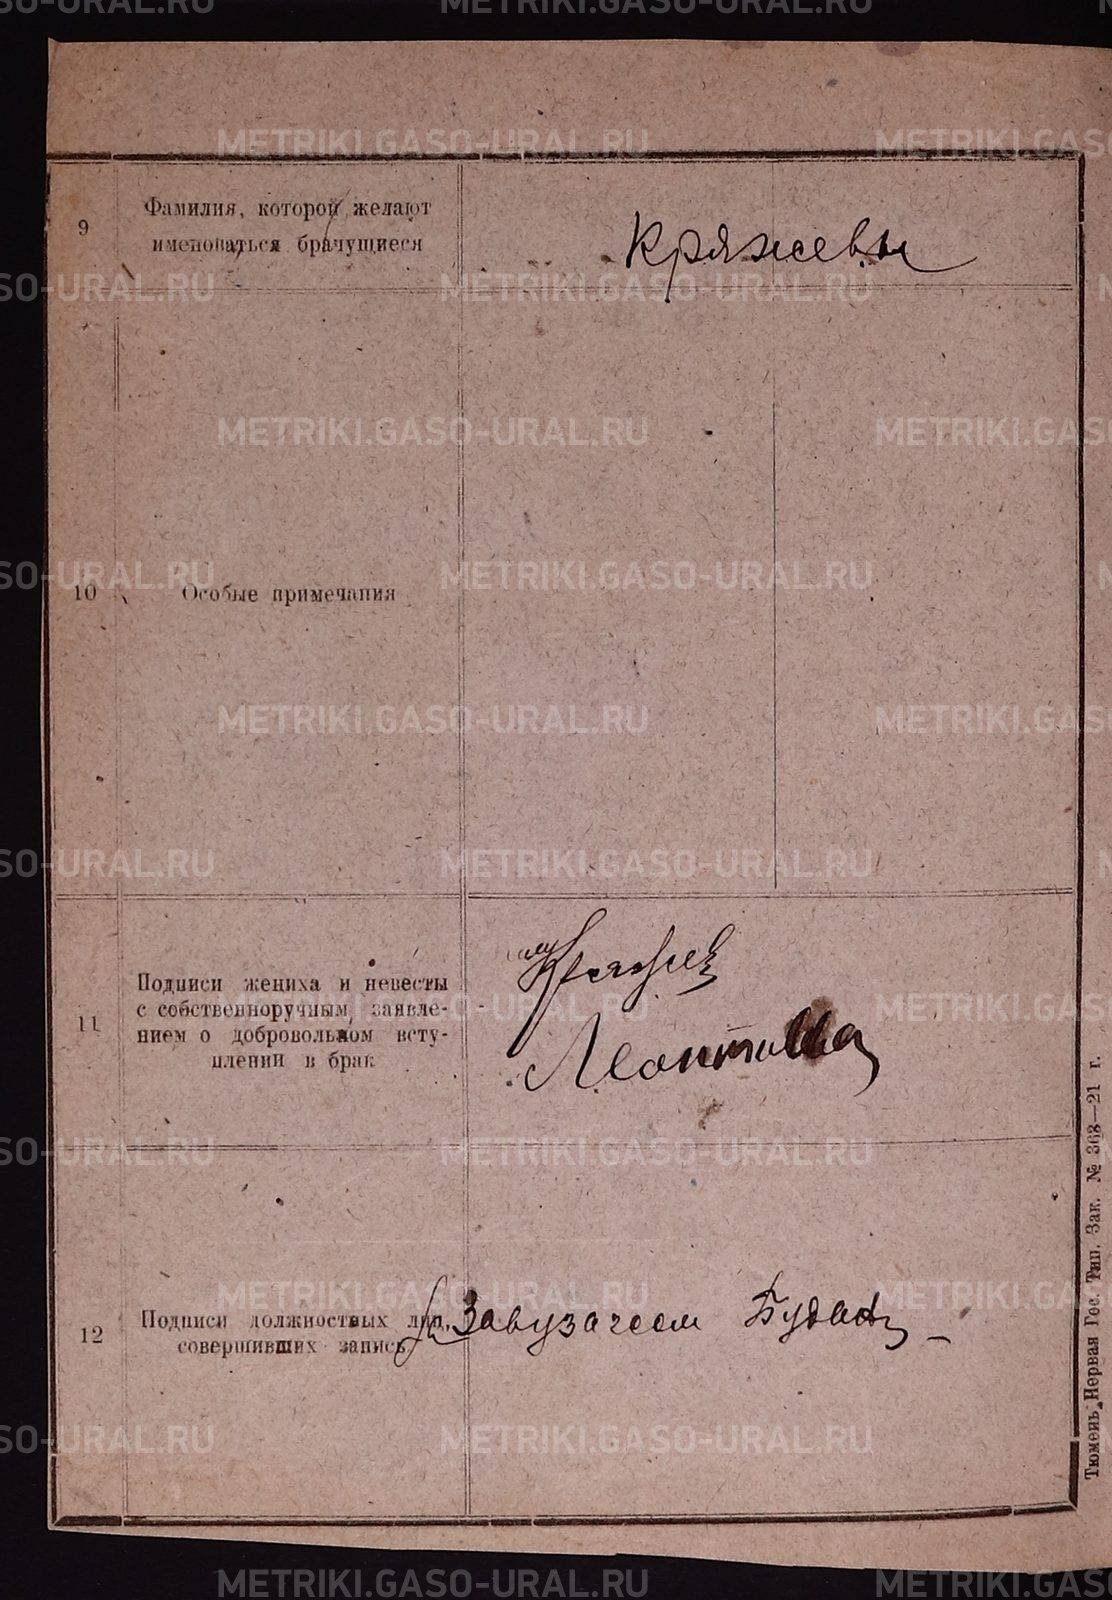 METRIKI.GASO-URAL.RU
9
Фамилия, которой желают
именоваться брачущиеся
Кряжевы
10
Особые примечания
11
Подписи жениха и невесты
с собственноручным заявле-
нием о добровольном всту-
плении в брак
Кряжев
Леонтьева
12
Подписи должностных лиц,
совершивших запись
Завузагсом
Тюмень, Первая Гос. Тип. Зак. № 368—21 г.